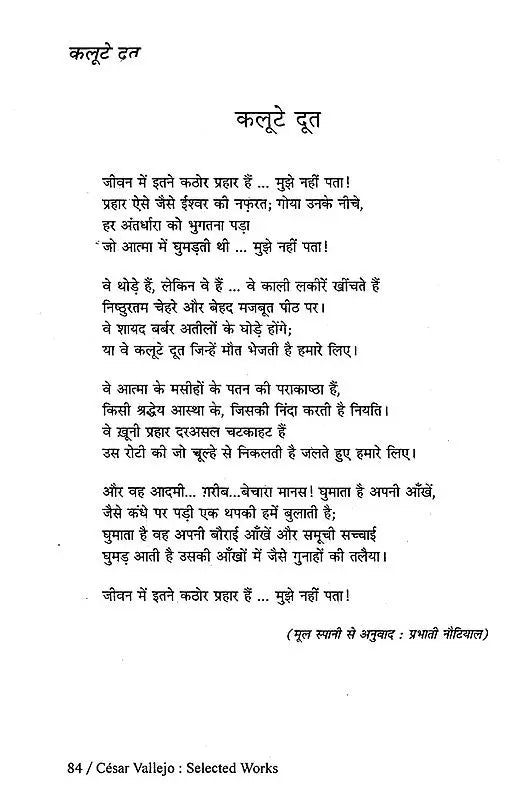 कलूटे द्रत
कलूटे दूत
जीवन में इतने कठोर प्रहार हैं ... मुझे नहीं पता!
प्रहार ऐसे जैसे ईश्वर की नफ़रत; गोया उनके नीचे,
हर अंतर्धारा को भुगतना पड़ा
जो आत्मा में घुमड़ती थी ... मुझे नहीं पता!
वे थोड़े हैं, लेकिन वे हैं ... वे काली लकीरें खींचते हैं
निष्ठुरतम चेहरे और बेहद मजबूत पीठ पर।
वे शायद बर्बर अतीलों के घोड़े होंगे;
या वे कलूटे दूत जिन्हें मौत भेजती है हमारे लिए।
वे आत्मा के मसीहों के पतन की पराकाष्ठा हैं,
किसी श्रद्धेय आस्था के, जिसकी निंदा करती है नियति।
वे ख़ूनी प्रहार दरअसल चटकाहट हैं
उस रोटी की जो चूल्हे से निकलती है जलते हुए हमारे लिए।
और वह आदमी... ग़रीब...बेचारा मानस! घुमाता है अपनी आँखें,
जैसे कंधे पर पड़ी एक थपकी हमें बुलाती है;
घुमाता है वह अपनी बौराई आँखें और समूची सच्चाई
घुमड़ आती है उसकी आँखों में जैसे गुनाहों की तलैया।
जीवन में इतने कठोर प्रहार हैं ... मुझे नहीं पता!
(मूल स्पानी से अनुवाद : प्रभाती नौटियाल)
84 / César Vallejo : Selected Works